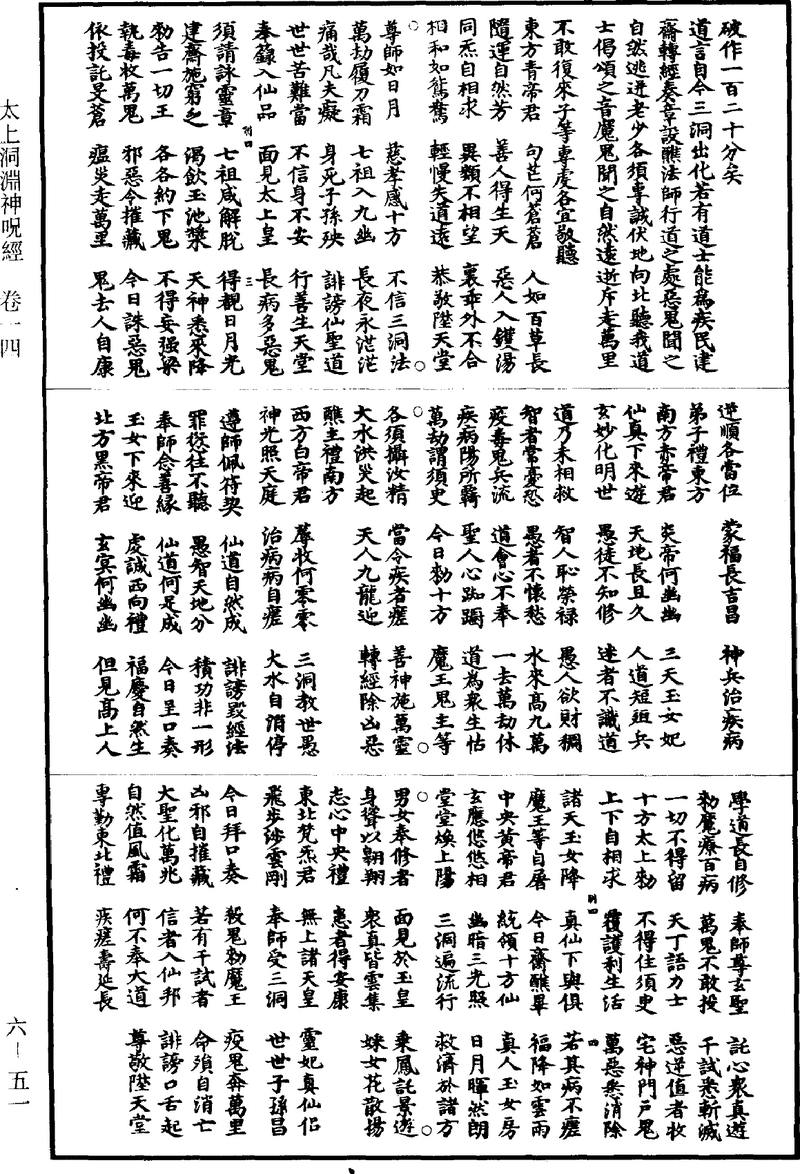 太上洞淵神呪經 卷一四
六—五一
破作一百二十分矣
道言自今三洞出化若有道士能爲疾民建
齋轉經奏章設醮法師行道之處惡鬼聞之
自然逃迸老少各須專誠伏地向北聽我道
士偈頌之音魔鬼聞之自然遠逝斥走萬里
不敢復來子等專處各宜敬聽
東方青帝君 句芒何蒼蒼 人如百草長
隨運自然芳 善人得生天 惡人入鑊湯
同炁自相求 異類不相望 裏乖外不合
相和如鴛鴦 輕慢失道遠 恭敬陞天堂
尊師如日月 慈孝感十方 不信三洞法
萬劫履刀霜 七祖入九幽 長夜永茫茫
痛哉凡夫癡 身死子孫殃 誹謗仙聖道
世世苦難當 不信身不安 行善生天堂
奉籙入仙品 面見太上皇 長病多惡鬼
須請詠靈章 七祖咸解脫 得覩日月光
建齋施窮乏 渴飲玉池漿 天神悉來降
勑告一切王 各各約下鬼 不得妄强梁
執毒收萬鬼 邪惡令摧藏 今日誅惡鬼
依投託旻蒼 瘟炎走萬里 鬼去人自康
逆順各當位 蒙福長吉昌 神兵治疾病
弟子禮東方
南方赤帝君 炎帝何幽幽 三天玉女妃
仙真下來遊 天地長且久 人道短俎兵
玄妙化明世 愚徒不知修 迷者不識道
道乃未相救 智人恥榮祿 愚人欲財稠
智者常憂恐 愚者不懷愁 水來高九萬
疫毒鬼兵流 道會心不奉 一去萬劫休
疾病陽所羇 聖人心踟躕 道為衆生怙
萬劫謂須臾 今日勑十方 魔王鬼主等
各須攝汝精 當令疾者瘥 善神施萬靈
大水洪災起 天人九龍迎 轉經除凶惡
醮主禮南方
西方白帝君 蓐收何零零 三洞教世愚
神光照天庭 治病病自瘥 大水自消停
遵師佩符契 仙道自然成 誹謗毀經法
罪愆往不聽 愚智天地分 積功非一形
奉師念善緣 仙道何足成 今日呈口奏
玉女下來迎 虔誠西向禮 福慶自然生
北方黑帝君 玄冥何幽幽 但見高上人
學道長自修 奉師尊玄聖 託心衆真遊
勑魔療百病 萬鬼不敢投 千試悉斬滅
一切不得留 天丁語力士 惡逆值者收
十方太上勑 不得住須臾 宅神門戶鬼
上下自相求 覆護利生活 萬惡悉消除
諸天玉女降 真仙下與俱 若其病不瘥
魔王等自屠 今日齋醮畢 福降如雲雨
中央黃帝君 統領十方仙 真人玉女房
玄應悠悠相 幽暗三光照 日月暉然朗
堂堂煥上陽 三洞遍流行 救濟於諸方
男女奉修者 面見於玉皇 乘鳳託景遊
身聳以翱翔 衆真皆雲集 婇女花散揚
志心中央禮 患者得安康
東北梵炁君 無上諸天皇 靈妃真仙侶
飛步涉雲剛 奉師受三洞 世世子孫昌
今日拜口奏 殺鬼勑魔王 疫鬼奔萬里
凶邪自摧藏 若有干試者 命殞自消亡
大聖化萬兆 信者入仙邦 誹謗口舌起
自然值風霜 何不奉大道 尊敬陞天堂
專勤東北禮 疾瘥壽延長